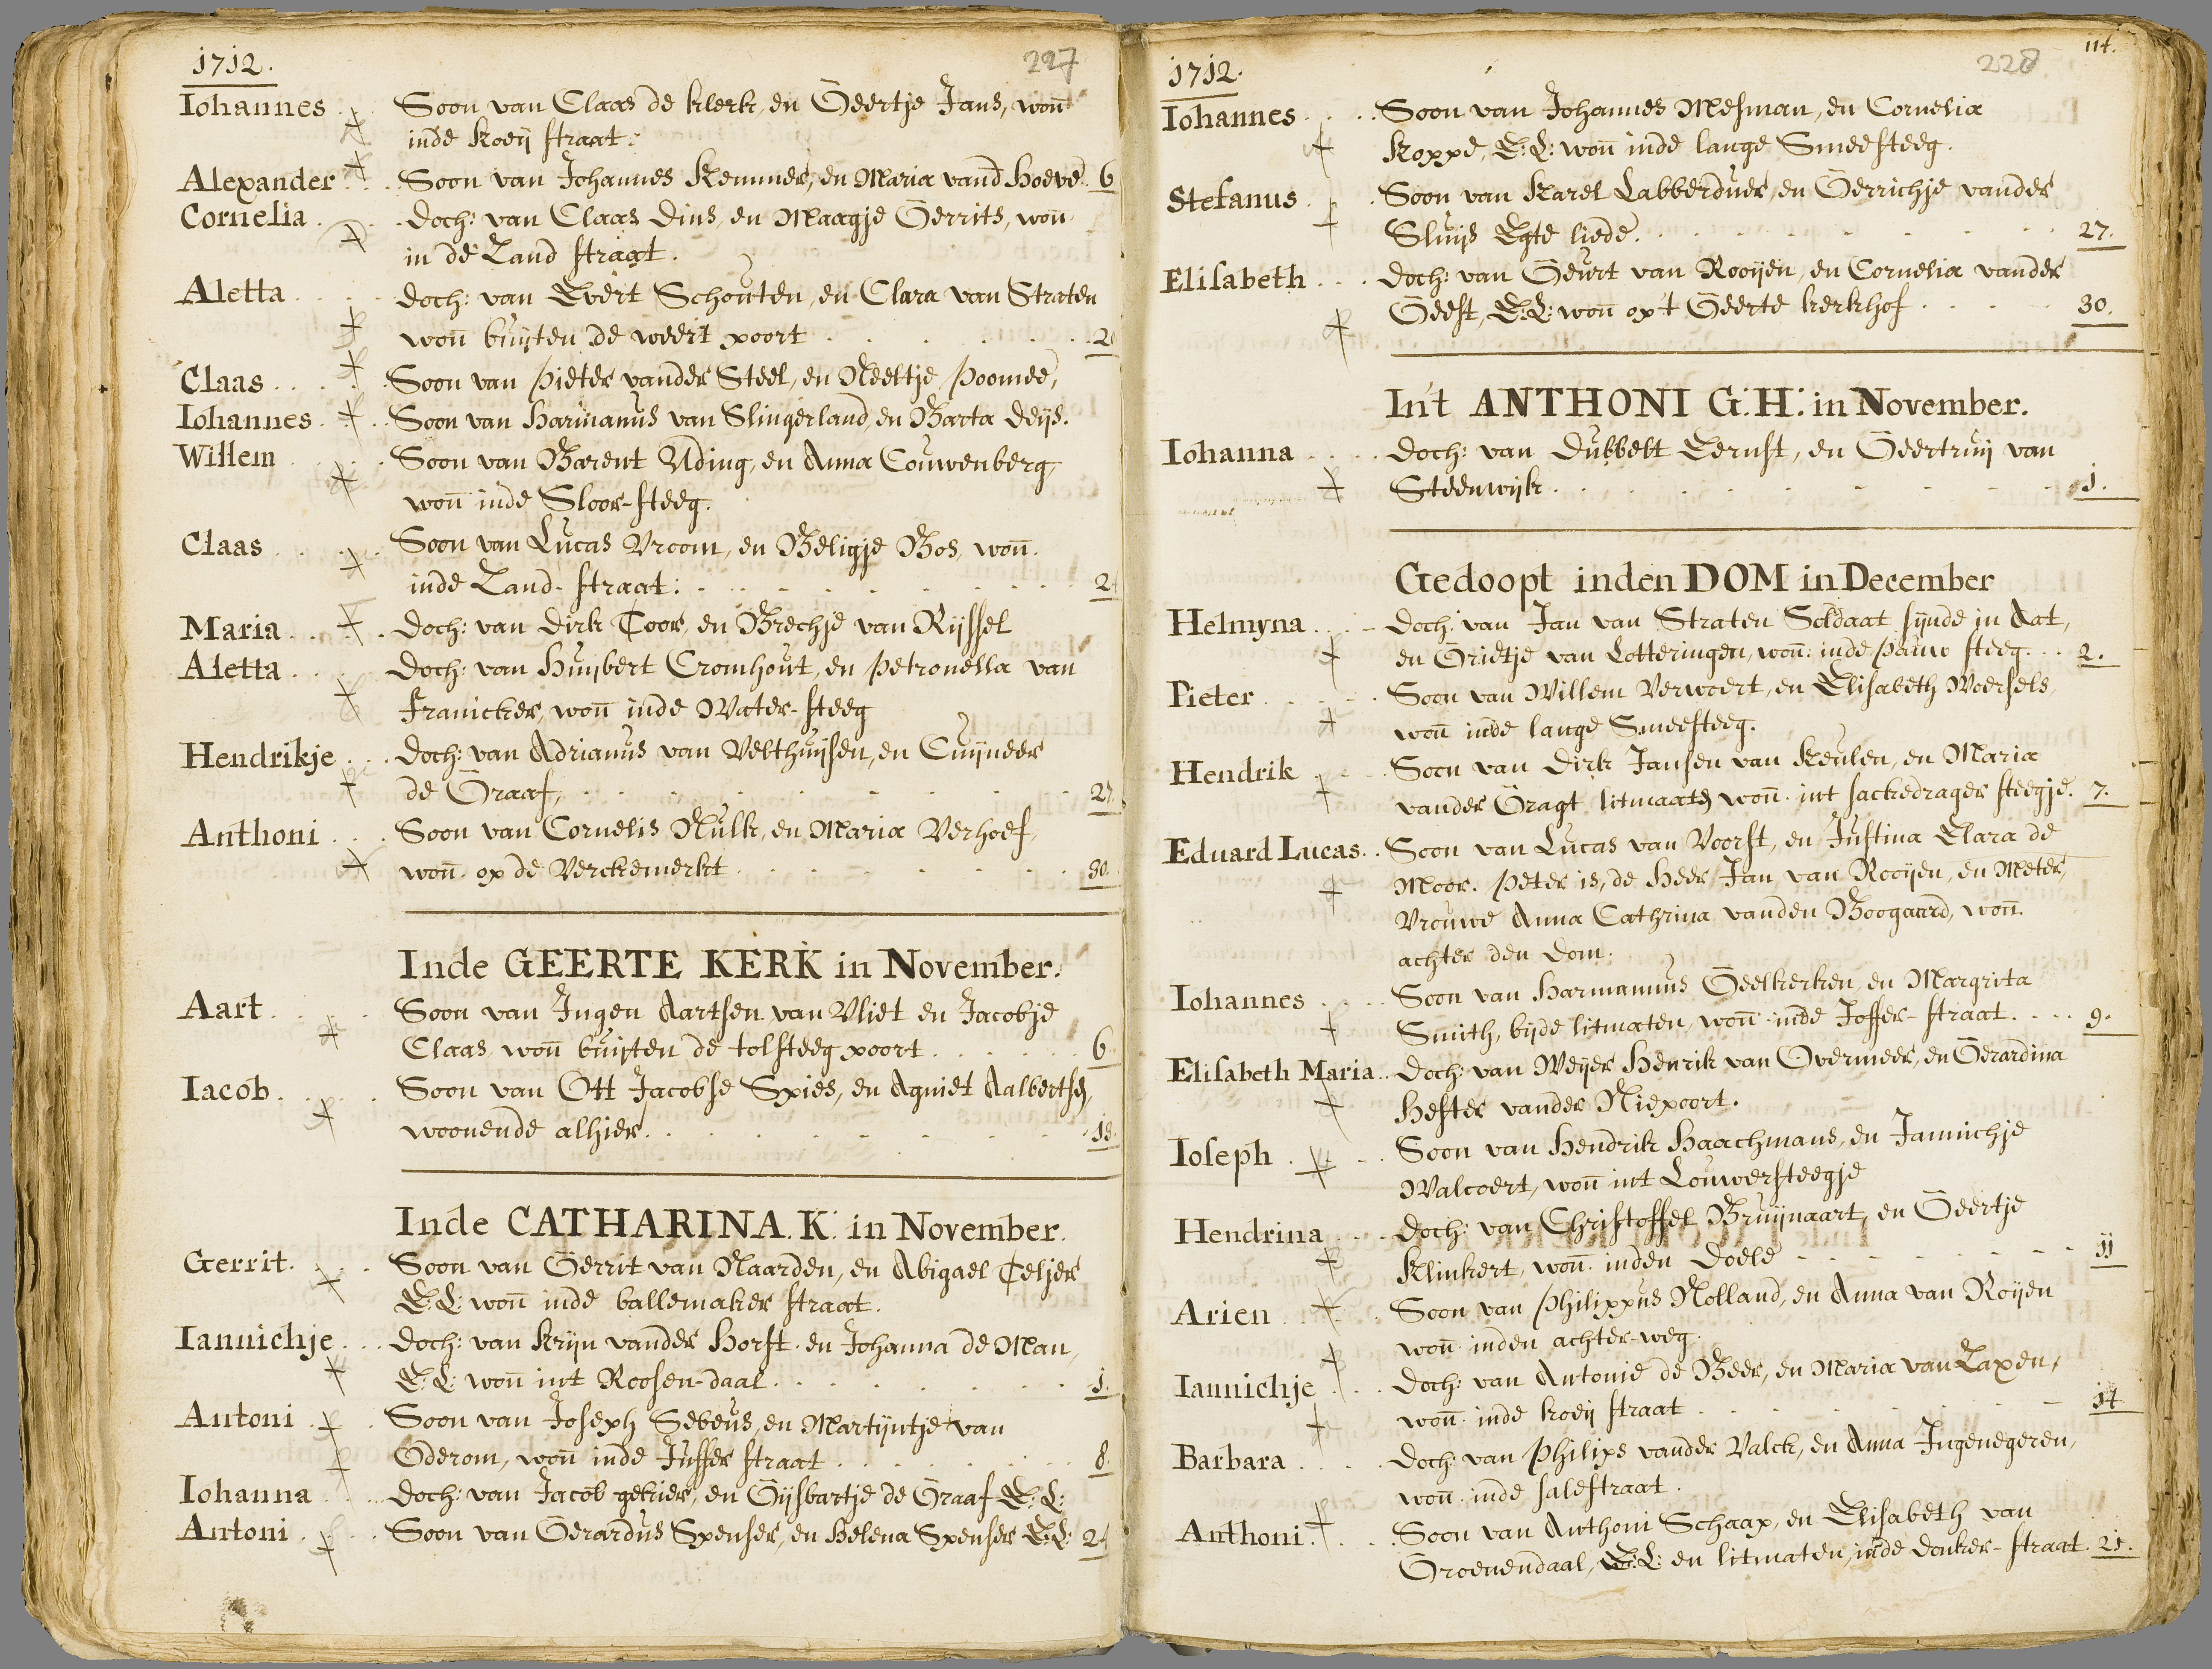 1712. 227
Iohannes . . Soon van Claas de klerk, en Geertje Jans, woñ
inde koeij straat:
Alexander . . Soon van Johannes Kemmer, en Maria vand Hoeve. 6
Cornelia . . doch: van Claas Dins, en Maagje Gerrits, woñ
in de Land straat.
Aletta . . . doch: van Evert Schouten, en Clara van Straten
woñ buijten de weert poort . . . . 2
Claas . . . . Soon van Pieter vander Steel, en Neeltje Poomee,
Iohannes . . Soon van Harmanus van Slingerland, en Barta Deijs.
Willem . . . Soon van Barent Uding, en Anna Couwenberg,
woñ inde Sloor-steeg.
Claas . . . . Soon van Lucas Vroom, en Beligje Bos, woñ.
inde Land-straat: . . . . 2
Maria . . . . doch: van Dirk Toor, en Brechje van Rijssel
Aletta . . . doch: van Huijbert Cromhout, en Petronella van
Franicker, woñ inde Water-steeg
Hendrikje . . doch: van Adrianus van Velthuijsen, en Cuijneer
de Graaf, . . . . 27
Anthoni . . . Soon van Cornelis Mulk, en Maria Verhoef,
woñ. op de Verckemerkt . . . . 30.
Inde GEERTE KERK in November.
Aart . . . Soon van Ingen Aartsen van Vliet en Jacobje
Claas, woñ buijten de tolsteeg poort . . . . 6
Iacob . . . . Soon van Ott Jacobse Spies, en Agniet Aalbertse,
woonende alhier . . . . 13.
Inde CATHARINA. K. in November.
Gerrit. . . Soon van Gerrit van Naarden, en Abigael Teljer
E:L: woñ inde ballemaker straat.
Iannichje . . doch: van Krijn vander Horst. en Johanna de Man,
E:L: woñ int Roosen-daal . . . . 1.
Antoni . . . Soon van Joseph Sebeus, en Martijntje van
Oderom, woñ inde Juffer straat . . . . 8.
Iohanna . . . doch: van Jacob gekier, en Gijsbartje de Graaf E:L:
Antoni . . . Soon van Gerardus Spenser, en Helena Spenser E:L: 2
1712. 228 114.
Iohannes . . . Soon van Johannes Mesman, en Cornelia
Koppe, E:L: woñ inde lange Smeesteeg.
Stefanus . . Soon van Karel Labberduer, en Gerrichje vander
Sluijs Egte liede. . . . . 27.
Elisabeth . . . doch: van Geurt van Rooijen, en Cornelia vander
Geest, E:L: woñ op't Geerte kerkhof . . . . 30.
In't ANTHONI G:H: in November.
Iohanna . . . doch: van Dubbelt Eernst, en Geertruij van
Steenwijk . . . . 1.
Gedoopt inden DOM in December
Helmyna . . . doch: van Jan van Straten Soldaat sijnde in Aat,
en Grietje van Lotteringen, woñ: inde pauw steeg . . . 2.
Pieter . . . Soon van Willem Verwoert, en Elisabeth Woersels,
woñ inde lange Smeesteeg.
Hendrik . . . Soon van Dirk Jansen van Keulen, en Maria
vander Gragt litmaate woñ. int sackedrager steegje. 7.
Eduard Lucas . . Soon van Lucas van Voorst, en Justina Clara de
Moor. Peter is, de Heer Jan van Rooijen, en Meter,
Vrouwe Anna Cathrina vanden Boogaard, woñ.
achter den Dom.
Iohannes . . . Soon van Harmannus Geelkerken, en Margrita
Smith, bijde litmaten, woñ inde Joffer-straat . . . 9.
Elisabeth Maria . . doch: van Meijer Henrik van Overmeer, en Gerardina
Hester vander Niepoort.
Ioseph . . . Soon van Hendrik Haachmans, en Jannichje
Walcoert, woñ int Louwersteegje
Hendrina . . . doch: van Christoffel Bruijnaart, en Geertje
Klinkert, woñ. inden Doele . . . . 11
Arien . . . Soon van Philippus Nolland, en Anna van Roijen
woñ inden achter-weg.
Iannichje . . . doch: van Antonie de Beer, en Maria van Laxen,
woñ. inde koeij straat . . . . 14
Barbara . . . doch: van Philips vander Valck, en Anna Ingenegeren,
woñ. inde salestraat.
Anthoni . . . Soon van Anthoni Schaap, en Elisabeth van
Groenendaal, E:L: en litmaten, inde donker-straat. 21.